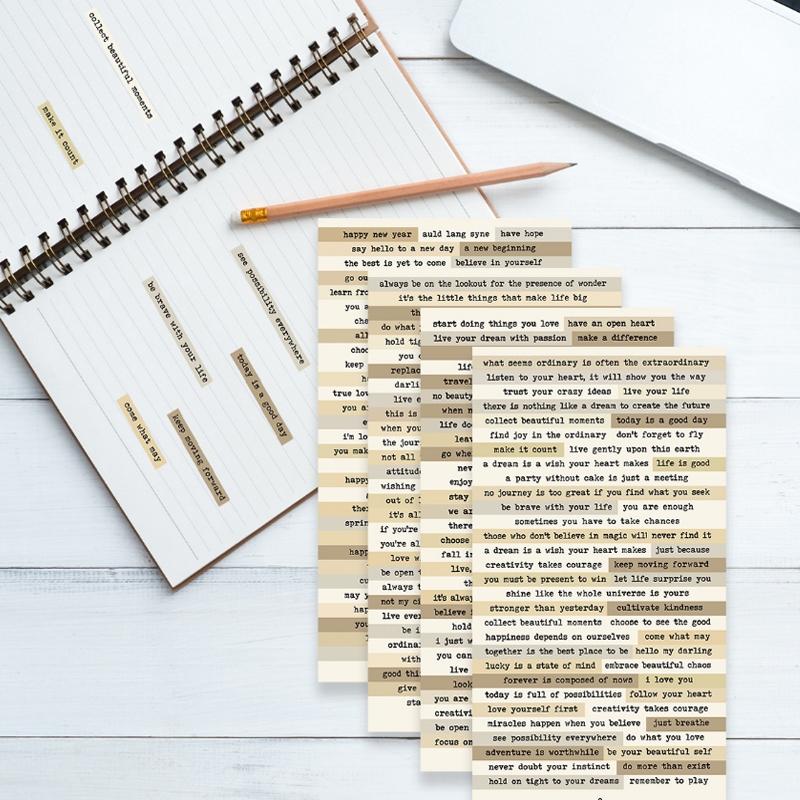 collect beautiful moments
make it count
see possibility everywhere
be brave with your life
today is a good day
come what may
keep moving forward
happy new year auld lang syne have hope
say hello to a new day a new beginning
the best is yet to come believe in yourself
go ou
learn fro
you a
cha
all
choo
keep
h
true lov
you ar
i'm lo
you mak
happy
the
sprin
happ
cu
may y
hap
you
l
always be on the lookout for the presence of wonder
it's the little things that make life big
th
do what
hold tig
you c
replac
darli
live e
this is
when you
the jour
not all
attitud
wishing
out of
it's all
if you're
you're al
love w
be open t
always t
not my ci
live ever
be i
ordina
with
good thi
give
sta
start doing things you love have an open heart
live your dream with passion make a difference
life
travel
no beauty
when n
life doe
leav
go whe
nev
enjoy
stay
we ar
there
choose
fall i
live,
th
it's alway
believe
hold
i just w
you can
live
look
you are
creativi
be open
focus on
what seems ordinary is often the extraordinary
listen to your heart, it will show you the way
trust your crazy ideas live your life
there is nothing like a dream to create the future
collect beautiful moments today is a good day
find joy in the ordinary don't forget to fly
make it count live gently upon this earth
a dream is a wish your heart makes life is good
a party without cake is just a meeting
no journey is too great if you find what you seek
be brave with your life you are enough
sometimes you have to take chances
those who don't believe in magic will never find it
a dream is a wish your heart makes just because
creativity takes courage keep moving forward
you must be present to win let life surprise you
shine like the whole universe is yours
stronger than yesterday cultivate kindness
collect beautiful moments choose to see the good
happiness depends on ourselves come what may
together is the best place to be hello my darling
lucky is a state of mind embrace beautiful chaos
forever is composed of nows i love you
today is full of possibilities follow your heart
love yourself first creativity takes courage
miracles happen when you believe just breathe
see possibility everywhere do what you love
adventure is worthwhile be your beautiful self
never doubt your instinct do more than exist
hold on tight to your dreams remember to play